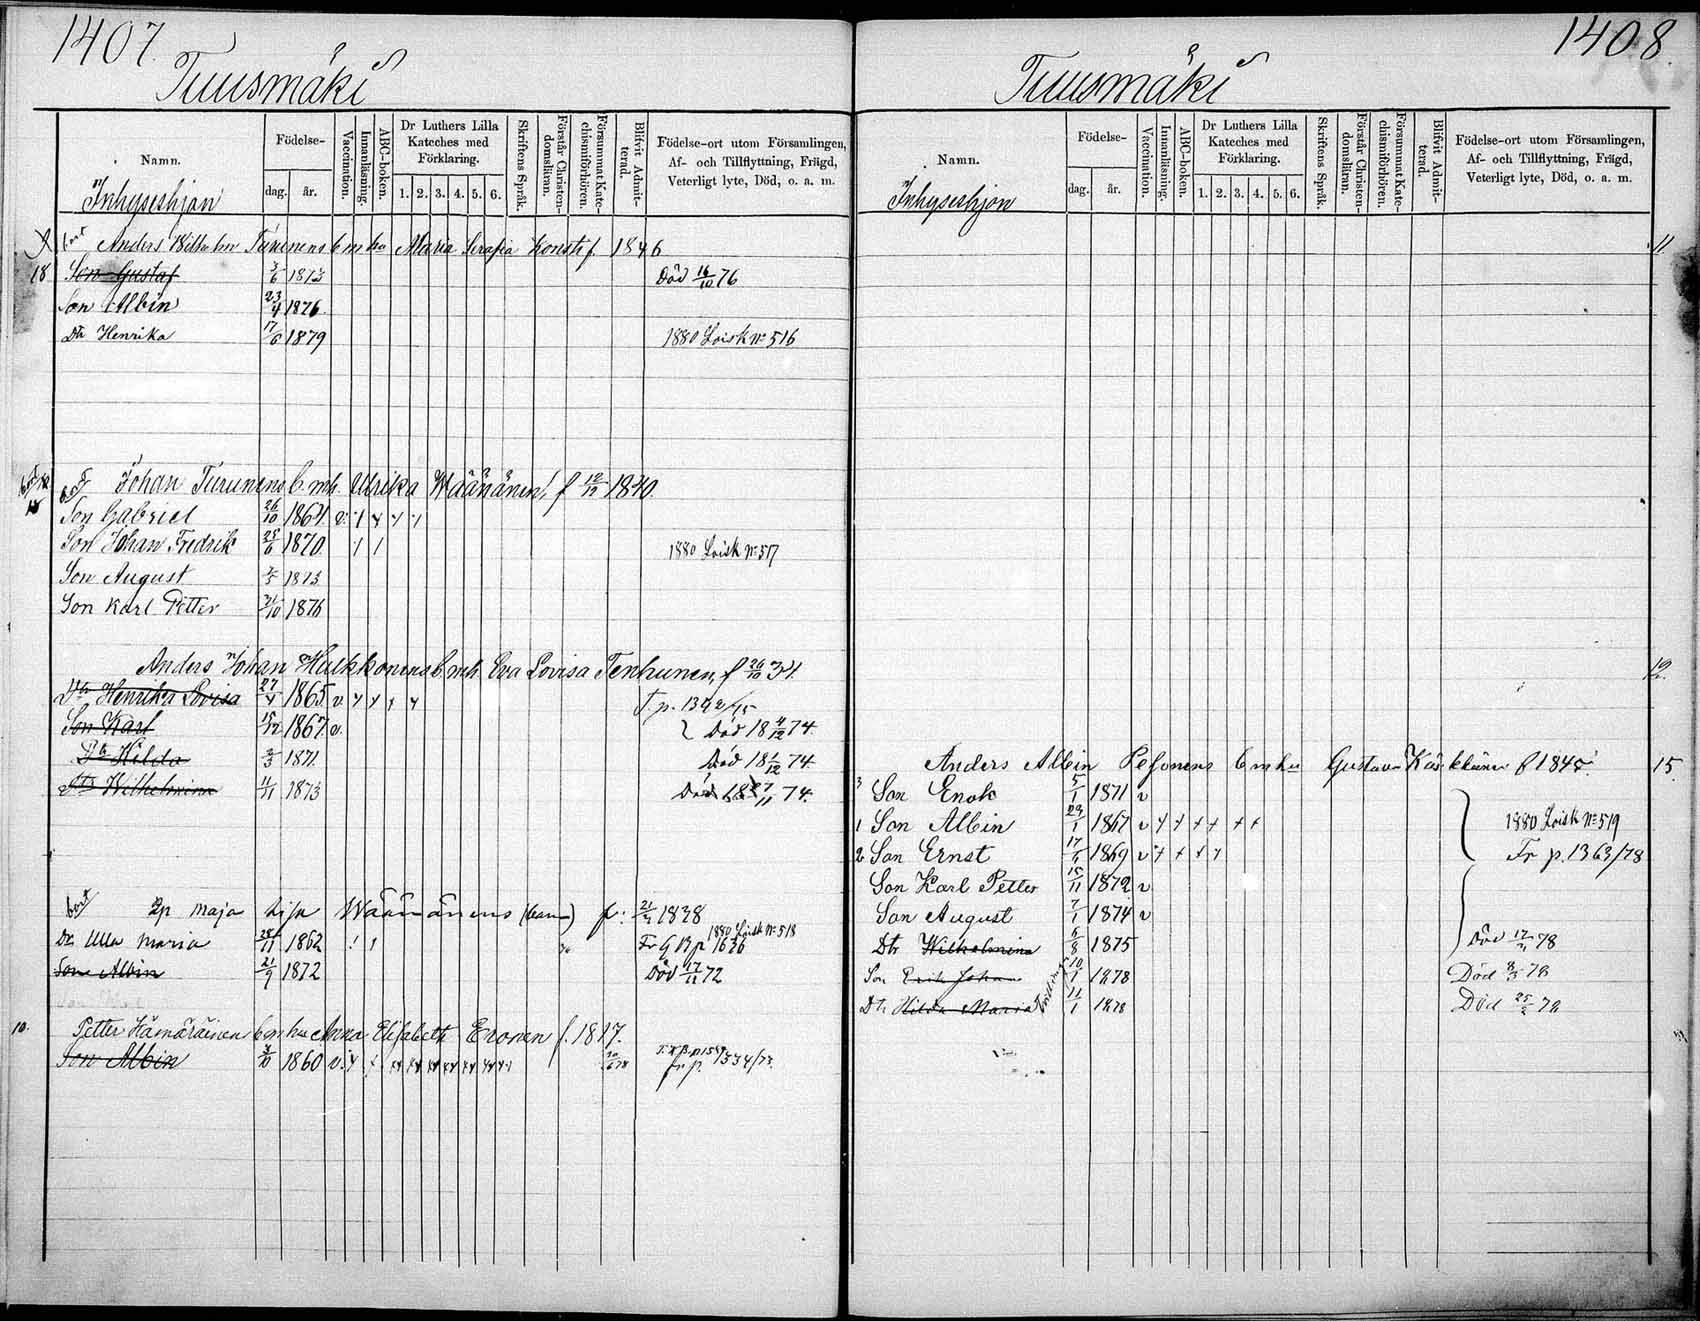 1407.
Tuusmäki
Namn.
Födelse-
dag.
år.
Vaccination.
Innanläsning.
ABC-boken.
Dr Luthers Lilla
Kateches med
Förklaring.
1. 2. 3. 4. 5. 6.
Skriftens Språk.
Förstår Christen-
domsläran.
Försummat Kate-
chismiförhören.
Blifvit Admit-
terad.
Födelse-ort utom Församlingen,
Af- och Tillflyttning, Frägd,
Veterligt lyte, Död, o. a. m.
Inhyseshjon
bort Anders Wilhelm Turunens b m hu Maria Serafia Konsti f. 1846
18 Son Gustaf 3/6 1873 Död 16/10 76
Son Albin 23/4 1876.
Dtr Henrika 17/6 1879 1880 Loisk No 516
Johan Turunens b. m h. Ulrika Wäänänen, f 12/12 1840.
Son Gabriel 26/10 1864 v.
Son Johan Fredrik 25/6 1870. 1880 Loisk No 517
Son August 1873
Son Karl Petter 21/10 1876
Anders Johan Hulkkonens b. m h. Eva Lovisa Tenhunen, f 26/10 34.
Dtr Henrika Lovisa 27/4 1865 v T. p. 1392/75
Son Karl 15/12 1867 v. Död 18 4/12 74.
Dtr Hilda 2/3 1871. Död 18 1/12 74.
Dtr Wilhelmina 11/11 1873 Död 18 27/11 74.
bort Ep Maja Lisa Wäänänens (barn) f: 1838
1880 Loisk No 518
Dtr Ulla Maria 28/11 1862 Fr G B p 1636
Son Albin 21/9 1872 Död 17/11 72
10. Petter Hämäräinen b m hu Anna Elisabeth Eronen f. 1817.
Son Albin 1860 v. fr p. 1334/73.
1408.
Tuusmäki
Namn.
Födelse-
dag.
år.
Vaccination.
Innanläsning.
ABC-boken.
Dr Luthers Lilla
Kateches med
Förklaring.
1. 2. 3. 4. 5. 6.
Skriftens Språk.
Förstår Christen-
domsläran.
Försummat Kate-
chismiförhören.
Blifvit Admit-
terad.
Födelse-ort utom Församlingen,
Af- och Tillflyttning, Frägd,
Veterligt lyte, Död, o. a. m.
Inhyseshjon
11.
12.
Anders Albin Pesonens b m hu Gustava Käkkäinen f 1845. 15.
3 Son Enok 5/1 1871 v
1 Son Albin 29/1 1867 v 1880 Loisk No 519
2 Son Ernst 17/6 1869 v Fr p. 1363/78
Son Karl Petter 15/11 1872 v
Son August 7/1 1874 v
Dtr Wilhelmina 6/8 1875 Död 78
Son Erik Johan 10/1 1878 Död 78
Dtr Hilda Maria Tvillingar 11/1 1878 Död 78